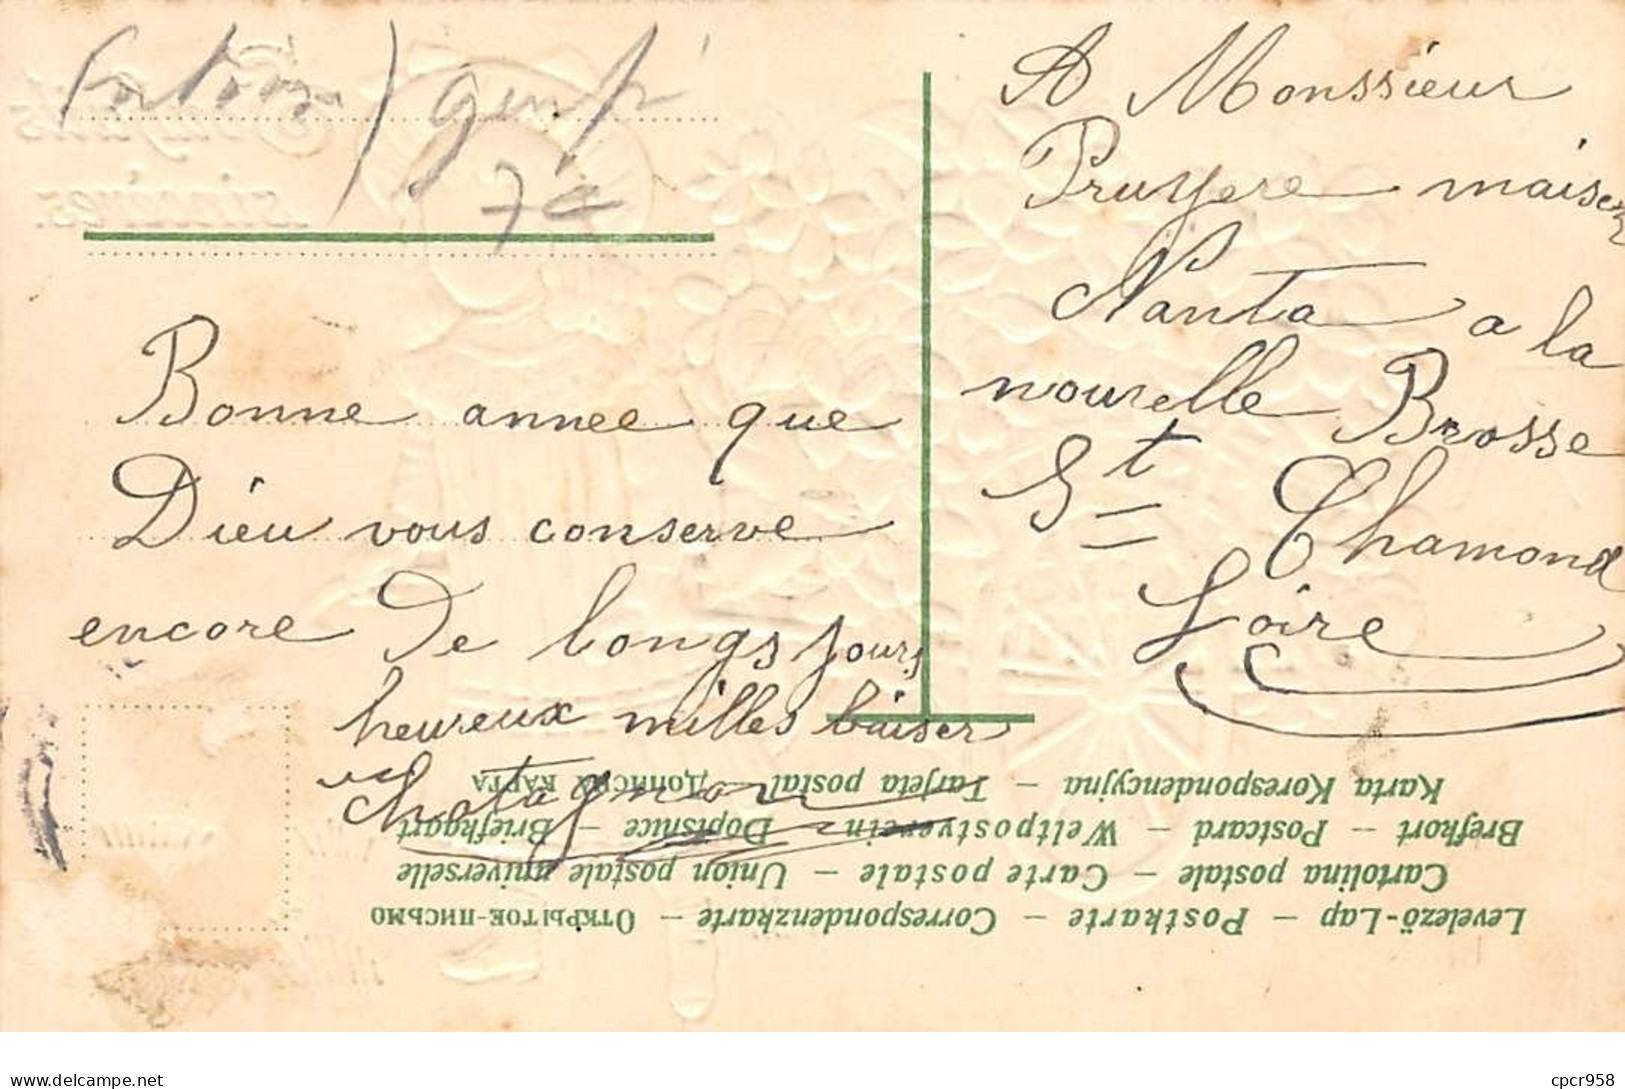 A Monssieur
Pruyere maison
Nanta a la
nouvelle Brosse
St Chamond
Loire
Bonne annee que
Dieu vous conserve
encore De longs jours
heureux milles baiser
Chatagnon
Karta Korespondencyjna – Tarjeta postal – Дописна карта
Brefkort – Postcard – Weltpostverein – Dopisnice – Briefkaart
Cartolina postale – Carte postale – Union postale universelle
Levelező-Lap – Postkarte – Correspondenzkarte – Открытое-письмо
delcampe.net
cpcr958